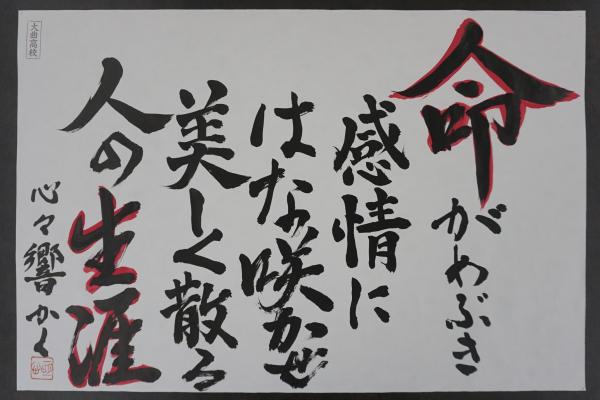 命がわぶき
感情に
はな咲かせ
美しく散る
人の生涯
心々響かく
大曲高校